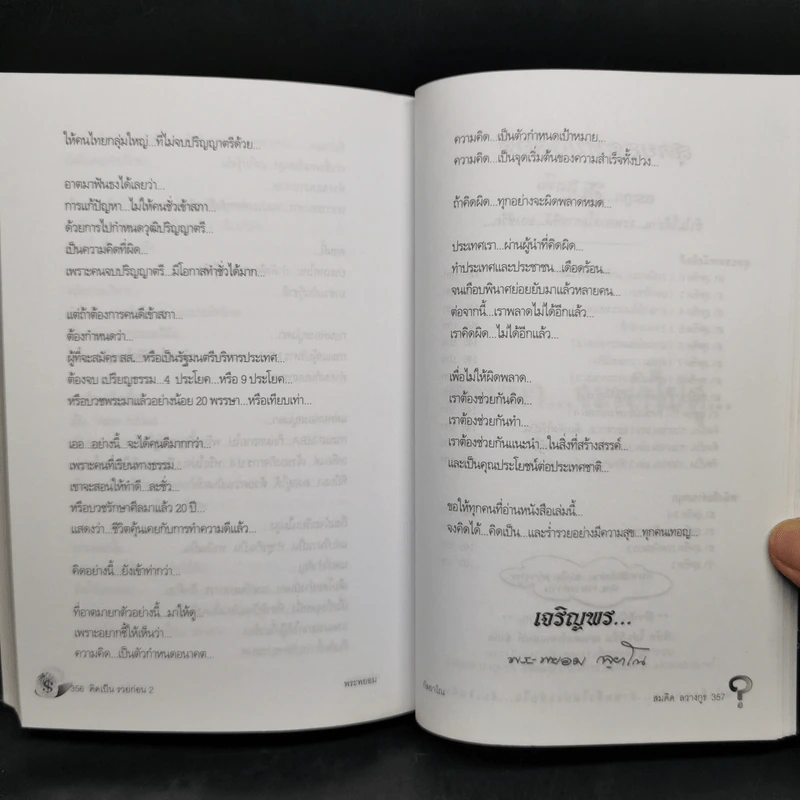 ให้คนไทยกลุ่มใหญ่...ที่ไม่จบปริญญาตรีด้วย...
อาตมาฟันธงได้เลยว่า...
การแก้ปัญหา...ไม่ให้คนชั่วเข้าสภา...
ด้วยการไปกำหนดวุฒิปริญญาตรี...
เป็นความคิดที่ผิด...
เพราะคนจบปริญญาตรี...มีโอกาสทำชั่วได้มาก...
แต่ถ้าต้องการคนดีเข้าสภา...
ต้องกำหนดว่า...
ผู้ที่จะสมัคร สส. ...หรือเป็นรัฐมนตรีบริหารประเทศ...
ต้องจบ เปรียญธรรม...4 ประโยค...หรือ 9 ประโยค...
หรือบวชพระมาแล้วอย่างน้อย 20 พรรษา...หรือเทียบเท่า...
เออ...อย่างนี้...จะได้คนดีมากกว่า...
เพราะคนที่เรียนทางธรรม...
เขาจะสอนให้ทำดี...ละชั่ว...
หรือบวชรักษาศีลมาแล้ว 20 ปี...
แสดงว่า...ชีวิตคุ้นเคยกับการทำความดีแล้ว...
คิดอย่างนี้...ยังเข้าท่ากว่า...
ที่อาตมายกตัวอย่างนี้...มาให้ดู...
เพราะอยากชี้ให้เห็นว่า...
ความคิด...เป็นตัวกำหนดอนาคต...
356 คิดเป็น รวยก่อน 2
พระพยอม
ความคิด...เป็นตัวกำหนดเป้าหมาย...
ความคิด...เป็นจุดเริ่มต้นของความสำเร็จทั้งปวง...
ถ้าคิดผิด...ทุกอย่างจะผิดพลาดหมด...
ประเทศเรา...ผ่านผู้นำที่คิดผิด...
ทำประเทศและประชาชน...เดือดร้อน...
จนเกือบพินาศย่อยยับมาแล้วหลายคน...
ต่อจากนี้...เราพลาดไม่ได้อีกแล้ว...
เราคิดผิด...ไม่ได้อีกแล้ว...
เพื่อไม่ให้ผิดพลาด...
เราต้องช่วยกันคิด...
เราต้องช่วยกันทำ...
เราต้องช่วยกันแนะนำ...ในสิ่งที่สร้างสรรค์...
และเป็นคุณประโยชน์ต่อประเทศชาติ...
ขอให้ทุกคนที่อ่านหนังสือเล่มนี้...
จงคิดได้...คิดเป็น...และร่ำรวยอย่างมีความสุข...ทุกคนเทอญ...
เจริญพร...
พระพยอม กลฺยาโณ
กัลยาโณ
สมคิด ลวางกูร 357